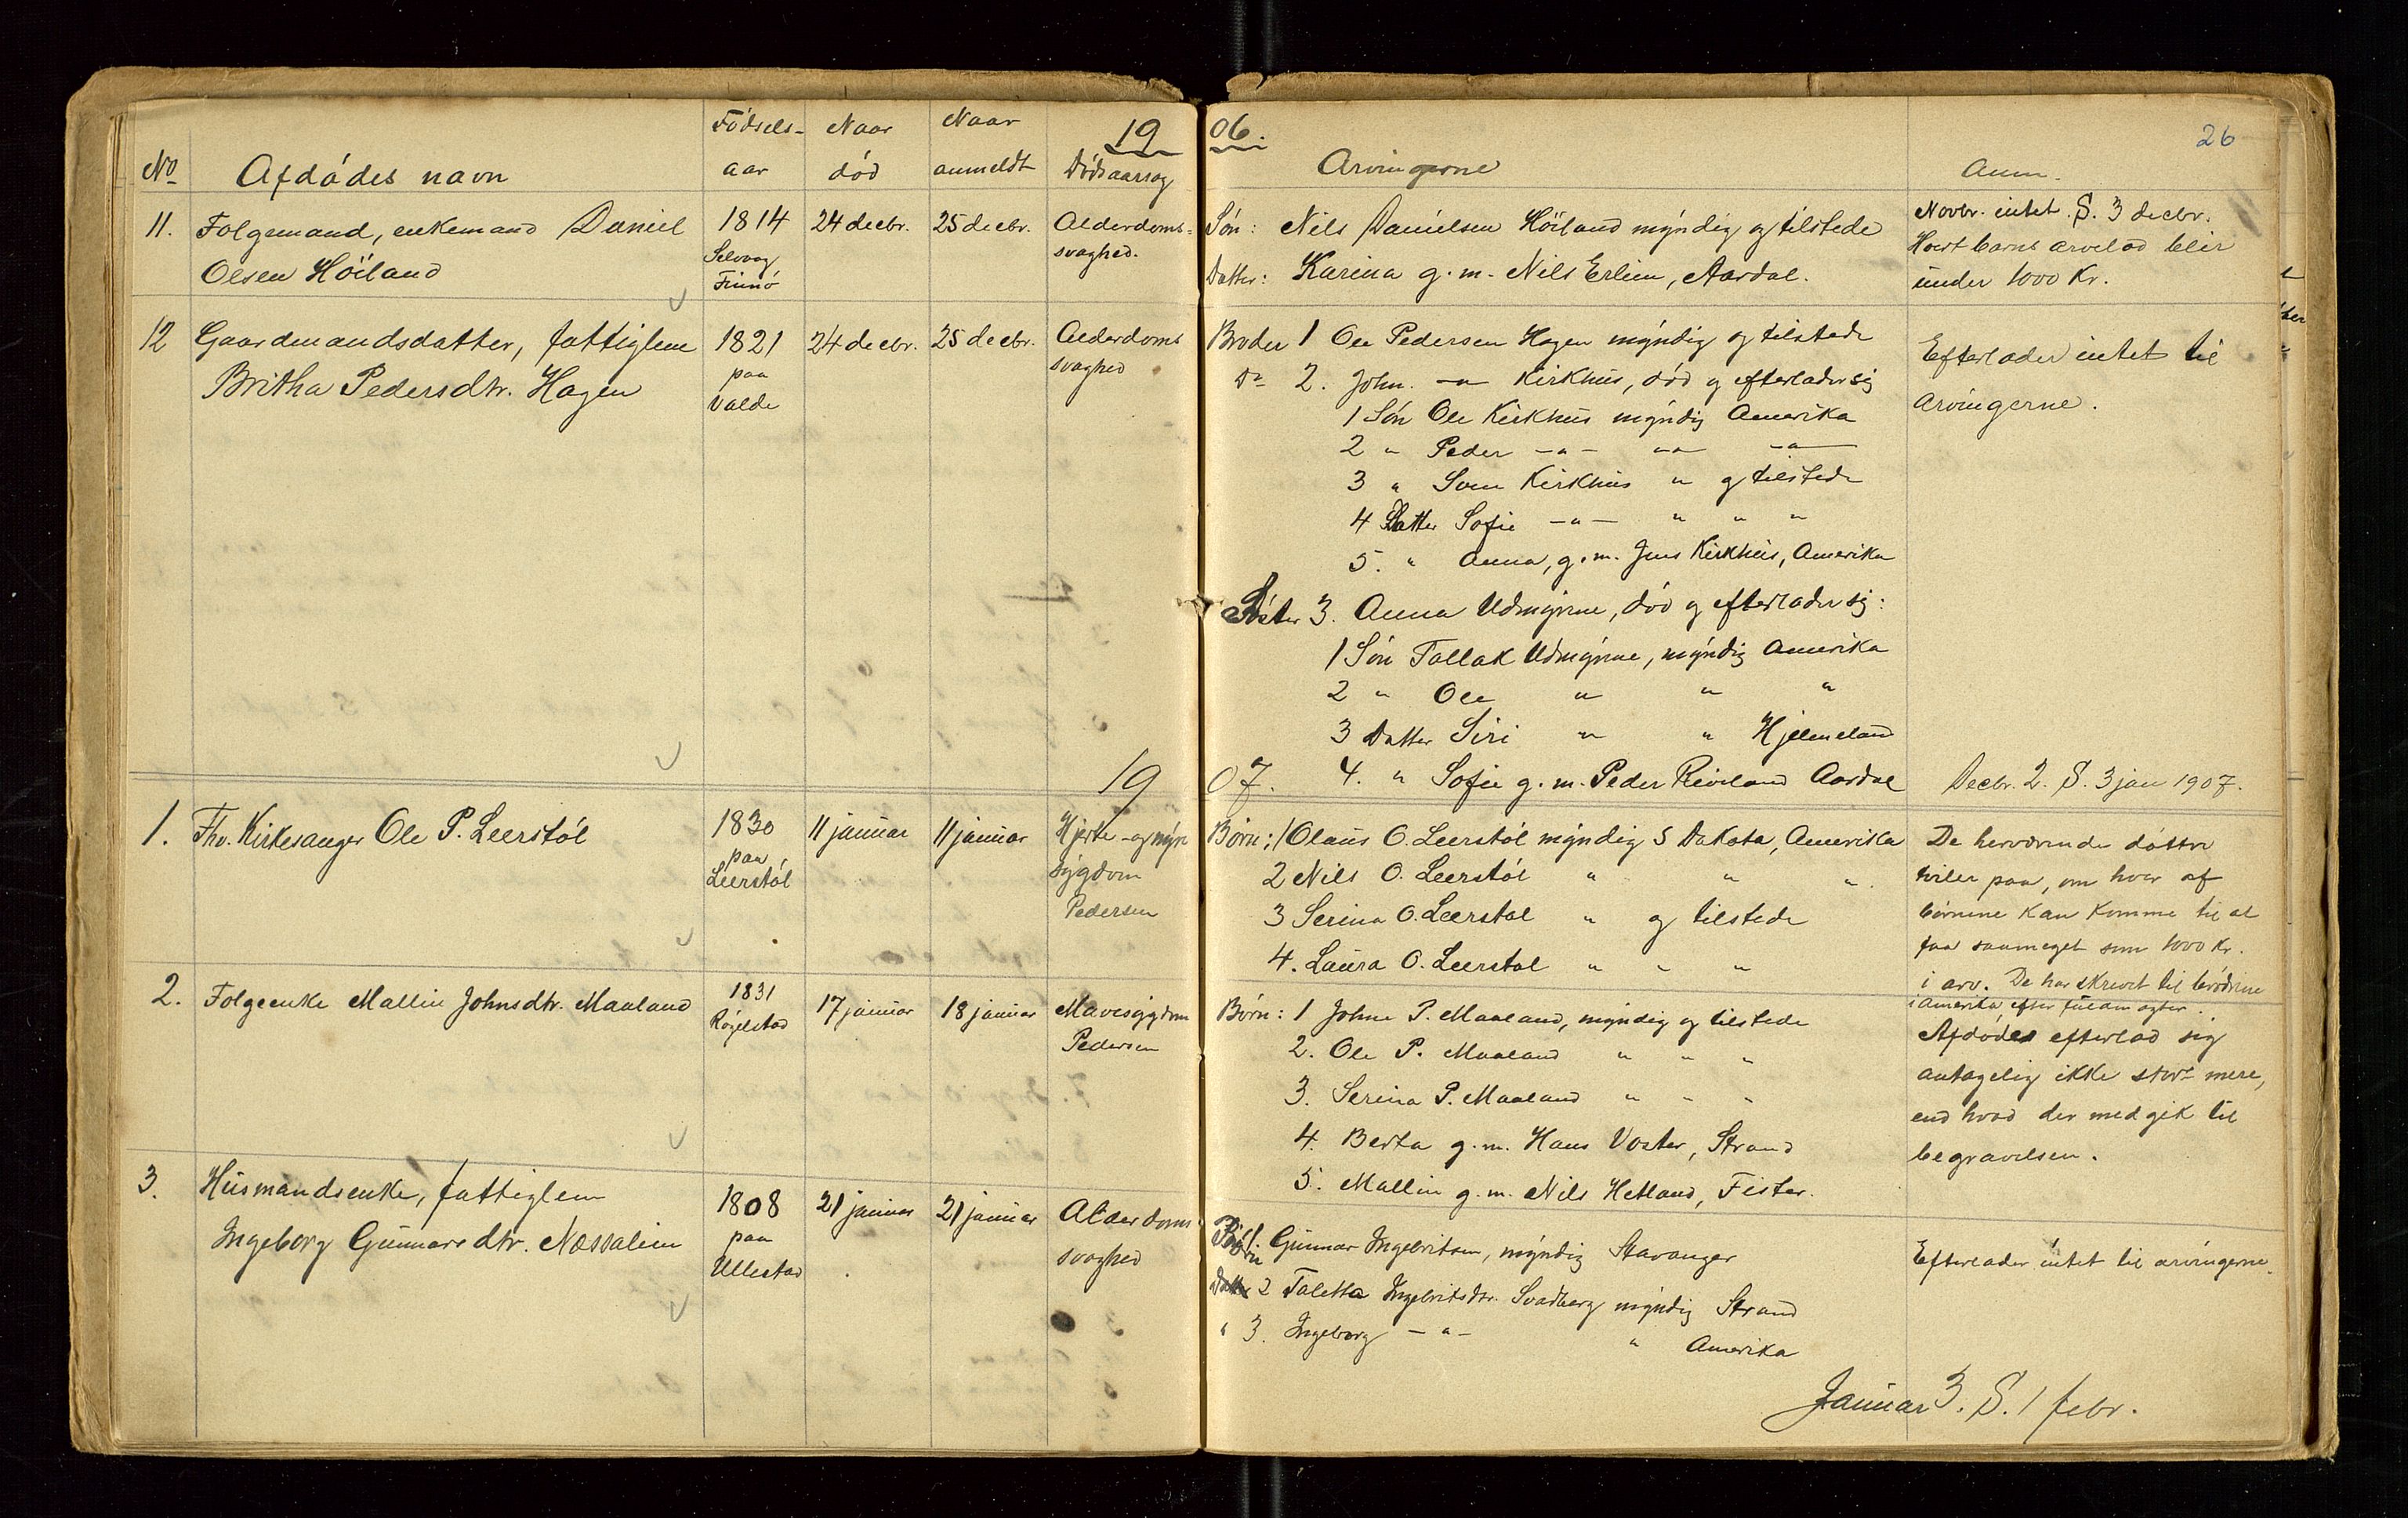 1906.
26
No Afdødes navn Fødselsaar Naar død Naar anmeldt Dødsaarsag Arvingerne Anm.
11. Folgemand, enkemand Daniel
Olsen Höiland
1814
Selvaag
Finnö
24 decbr.
25 decbr.
Alderdoms-
svaghed.
Søn: Nils Danielsen Höiland myndig og tilstede
Datter: Karina g. m. Nils Erlien, Aardal.
Novbr. intet. S. 3 decbr.
Hvert barns arvelod blir
under 1000 Kr.
12 Gaardmandsdatter, fattiglem
Britha Pedersdtr. Hagen
1821
paa
Valde
24 decbr.
25 decbr.
Alderdoms
svaghed
Broder 1 Ole Pedersen Hagen myndig og tilstede
Do 2. John. -"- Kirkhus, död og efterlader sig
1 Sön Ole Kirkhus myndig Amerika
2 " Peder -"- -"- -"-
3 " Sven Kirkhus " og tilstede
4 Datter Sofie -"- " " "
5. " Anna, g. m. Jens Kirkhus, Amerika
Söster 3. Anna Udmyrene, död og efterlader sig:
1 Sön Tallak Udmyrene, myndig Amerika
2 " Ole " " "
3 Datter Siri " " Hjelmeland
4. " Sofie g. m. Peder Riveland Aardal
Efterlader intet til
arvingerne.
Decbr. 2. S. 3 jan 1907.
1907.
1. Fhv. Kirkesanger Ole P. Leerstöl
1830
paa
Leerstöl
11 januar
11 januar
Hjerte- og nyre
sygdom
Pedersen
Börn: 1 Olaus O. Leerstöl myndig S Dakota, Amerika
2 Nils O. Leerstöl " " "
3 Serina O. Leerstöl " og tilstede
4. Laura O. Leerstöl " " "
De herværende döttre
tviler paa, om hver af
börnene kan komme til at
faa saameget som 1000 kr.
i arv. De har skrevet til brödrene
i Amerika efter fuldmagter.
2. Folgeenke Mallin Johnsdtr. Maaland
1831
Røgelstad
17 januar
18 januar
Mavesygdom
Pedersen
Börn: 1 John P. Maaland, myndig og tilstede
2. Ole P. Maaland " " "
3. Serina P. Maaland " " "
4. Berta g. m. Hans Voster, Strand
5. Mallin g. m. Nils Hetland, Fister.
Afdødes efterlod sig
antagelig ikke stort mere,
end hvad der medgik til
begravelsen.
3. Husmandsenke, fattiglem
Ingeborg Gunnarsdtr. Næssalien
1808
paa
Ullestad
21 januar
21 januar
Alderdoms
svaghed
Börn 1 Gunnar Ingebritsen, myndig Stavanger
Datter 2 Taletta Ingebritsdtr. Svadberg myndig Strand
" 3. Ingeborg -"- " Amerika
Efterlader intet til arvingerne.
Januar 3. S. 1 febr.